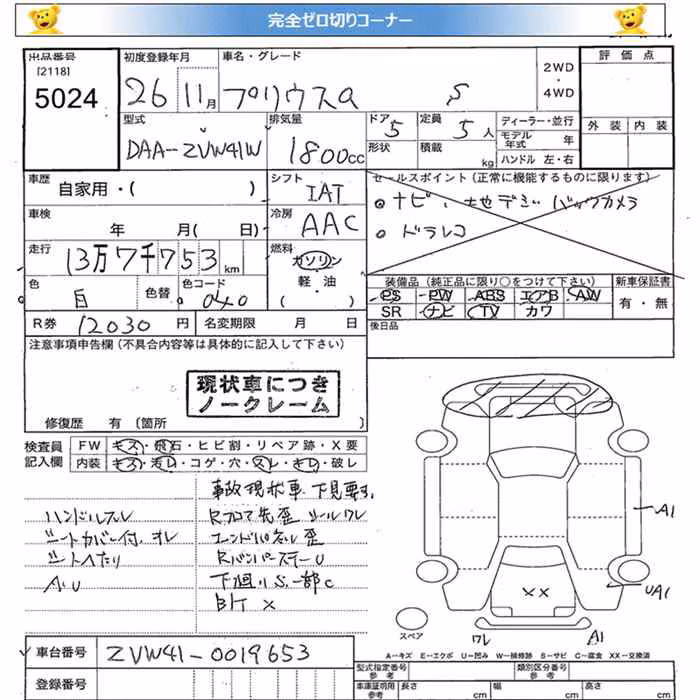 完全ゼロ切りコーナー
出品番号
[2118]
5024
初度登録年月
26 11月
車名・グレード
プリウスα S
2WD
・
4WD
評価点
外装 内装
型式
DAA-ZVW41W
排気量
1800cc
ドア 5
形状
定員 5人
積載 kg
ディーラー・並行
モデル年式 年
ハンドル 左・右
車歴
自家用・( )
シフト
IAT
セールスポイント (正常に機能するものに限ります)
ナビ・地デジ バックカメラ
ドラレコ
車検
年 月( 日)
冷房
AAC
走行
13万7千753km
燃料
ガソリン
軽・油
( )
色 白
色替
色コード 040
装備品 (純正品に限り○をつけて下さい)
新車保証書
PS PW ABS エアB AW
SR ナビ TV カワ
有・無
後日品
R券 12030円
名変期限 月 日
注意事項申告欄(不具合内容等は具体的に記入して下さい)
現状車につき
ノークレーム
修復歴 有 〔箇所 〕
検査員
記入欄
FW キズ・飛石・ヒビ割・リペア跡・X要
内装 キズ・汚レ・コゲ・穴・スレ・キレ・破レ
事故現状車 下見要す
ハンドルスレ
Rフロア先歪 シールワレ
シートカバー付 オレ
エンドパネル歪
シートヘたり
RバンパーステーU
A.U
下廻りS 一部C
BK X
A1
XX
UA1
ワレ
A1
スペア
A-キズ E-エクボ U-凹み W-補修跡 S-サビ C-腐食 XX-交換済
車台番号 ZVW41-0019653
登録番号
型式指定番号
参考
類別区分番号
参考
車庫証明用
参考
長さ cm
幅 cm
高さ cm